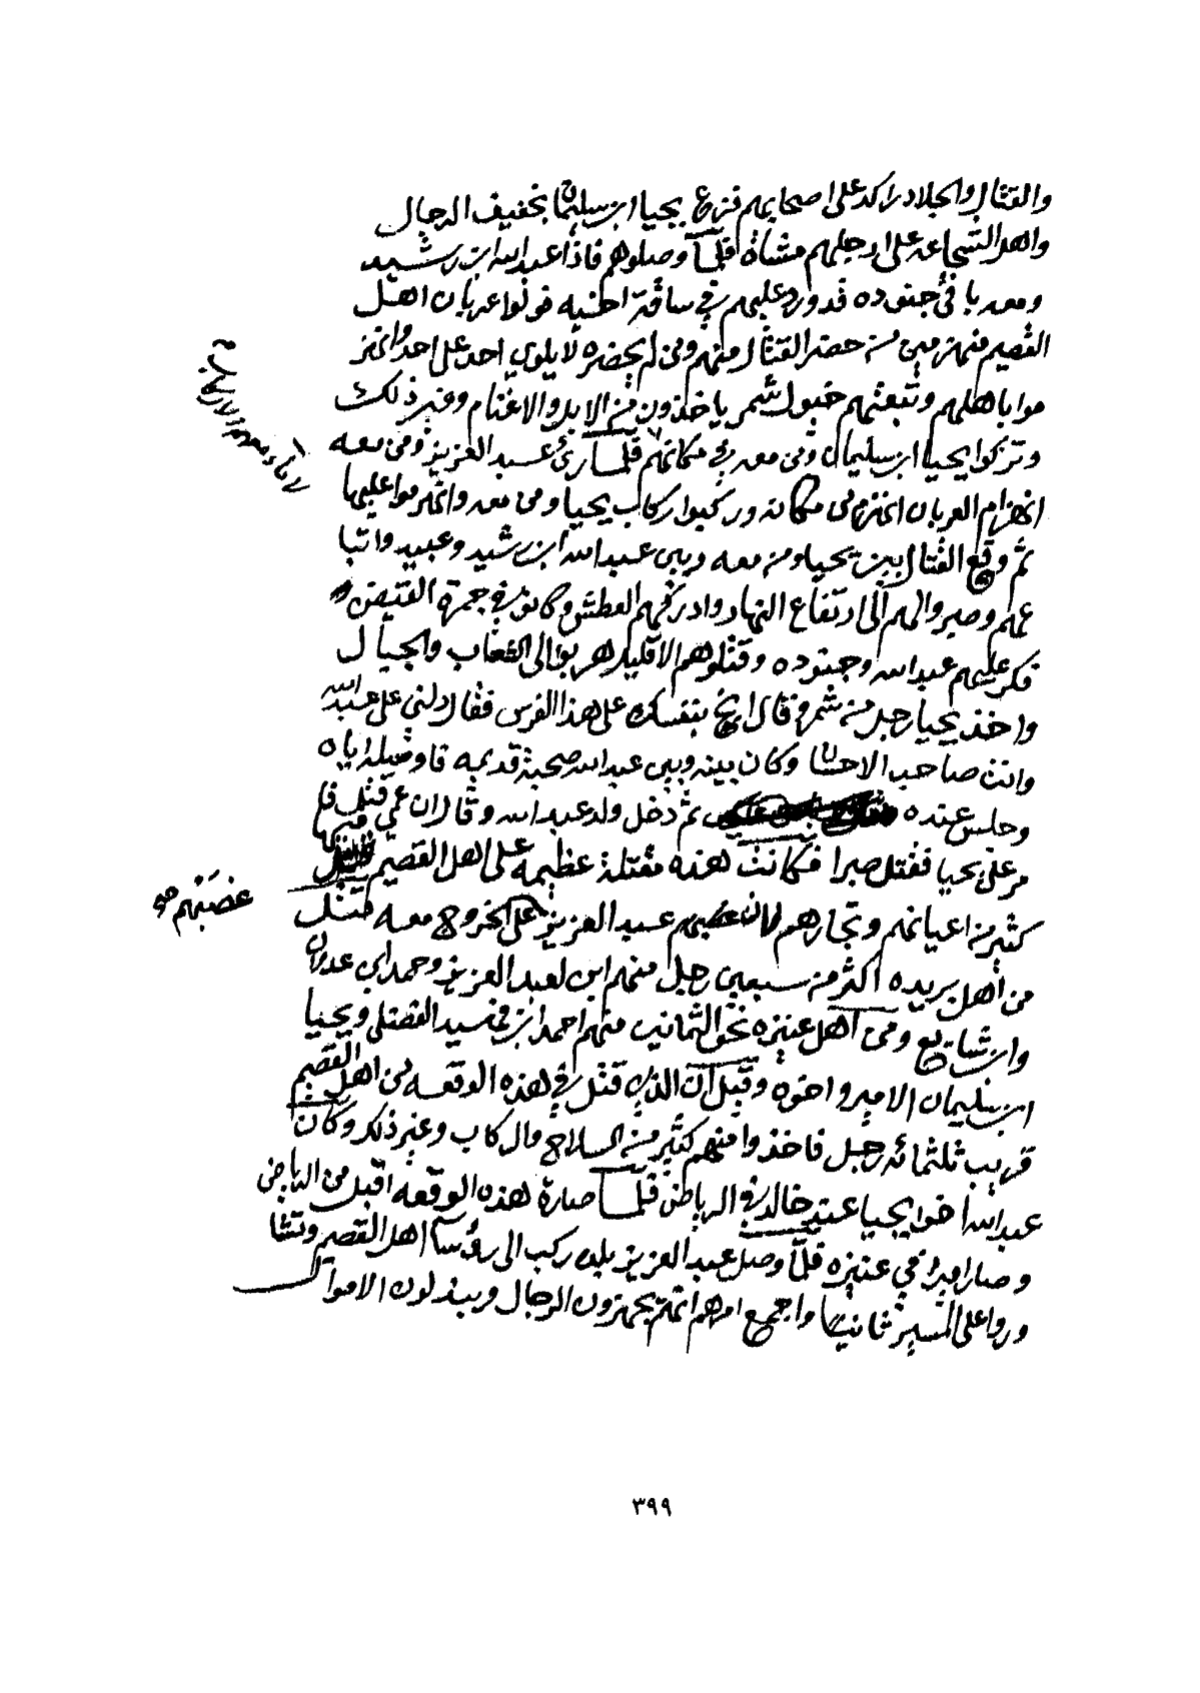 والقتال والجلاد راكد على اصحابهم فزع يحيا ابن سليمان بخفيف الرجال
واهل الشجاعه على ارجلهم مشاة فلما وصلوهم فاذا عبدالله ابن رشيد
ومعه باقي جنوده قد ورد عليهم في ساقة اخيه فولوا عربان اهل
القصيم منهزمين من حضر القتال منهم ومن لم يحضره لا يلوي احد على احد وانهز
موا باهلهم وتبعتهم خيول شمر ياخذون من الابل والاغنام وغير ذلك
وتركوا يحيا ابن سليمان ومن معه في مكانهم فلما رئ عبد العزيز ومن معه
انهزام العربان انهزم من مكانه وركبوا ركاب يحيا ومن معه وانهزموا عليها
ثم وقع القتال بين يحيا ومن معه وبين عبدالله ابن رشيد وعبيد واتبا
عهم وصبروا لهم الى ارتفاع النهار وادركهم العطش وكانوا في جمرة القيض
فكر عليهم عبدالله وجنوده وقتلوهم الا قليل هربوا الى الشعاب والجبال
واخذ يحيا رجل من شمر وقال انج بنفسك على هذا الفرس فقال دلني على عبدالله
وانت صاحب الاحسان وكان بينه وبين عبدالله صحبة قديمه فاوصله اياه
وجلس عنده ثم دخل ولد عبدالله وقال ان عمي قتل فا
مر على يحيا فقتل صبرا فكانت هذه مقتلة عظيمه على اهل القصيم قتل فيها
كثير من اعيانهم وتجارهم لان عبد العزيز على الخروج معه قتل
غصبهم صح
من اهل بريده اكثر من سبعين رجل منهم ابن لعبد العزيز وحمد ابن عدوان
وابن شايع ومن اهل عنيزه نحو الثمانين منهم احمد ابن ويحيا
ابن سليمان الامير واخوه وقيل ان الذي قتل في هذه الوقعه من اهل القصيم
قريب ثلثمائه رجل فاخذوا منهم كثير من السلاح والركاب وغير ذلك وكان
عبدالله اخو يحيا عند خالد في الرياض فلما صارة هذه الوقعه اقبل من الرياض
وصار امير في عنيزه فلما وصل عبد العزيز بلده ركب الى رؤسا اهل القصيم وتشا
وروا على المسير ثانيا واجمع امرهم انهم يجهزون الرجال ويبذلون الاموال
٣٩٩